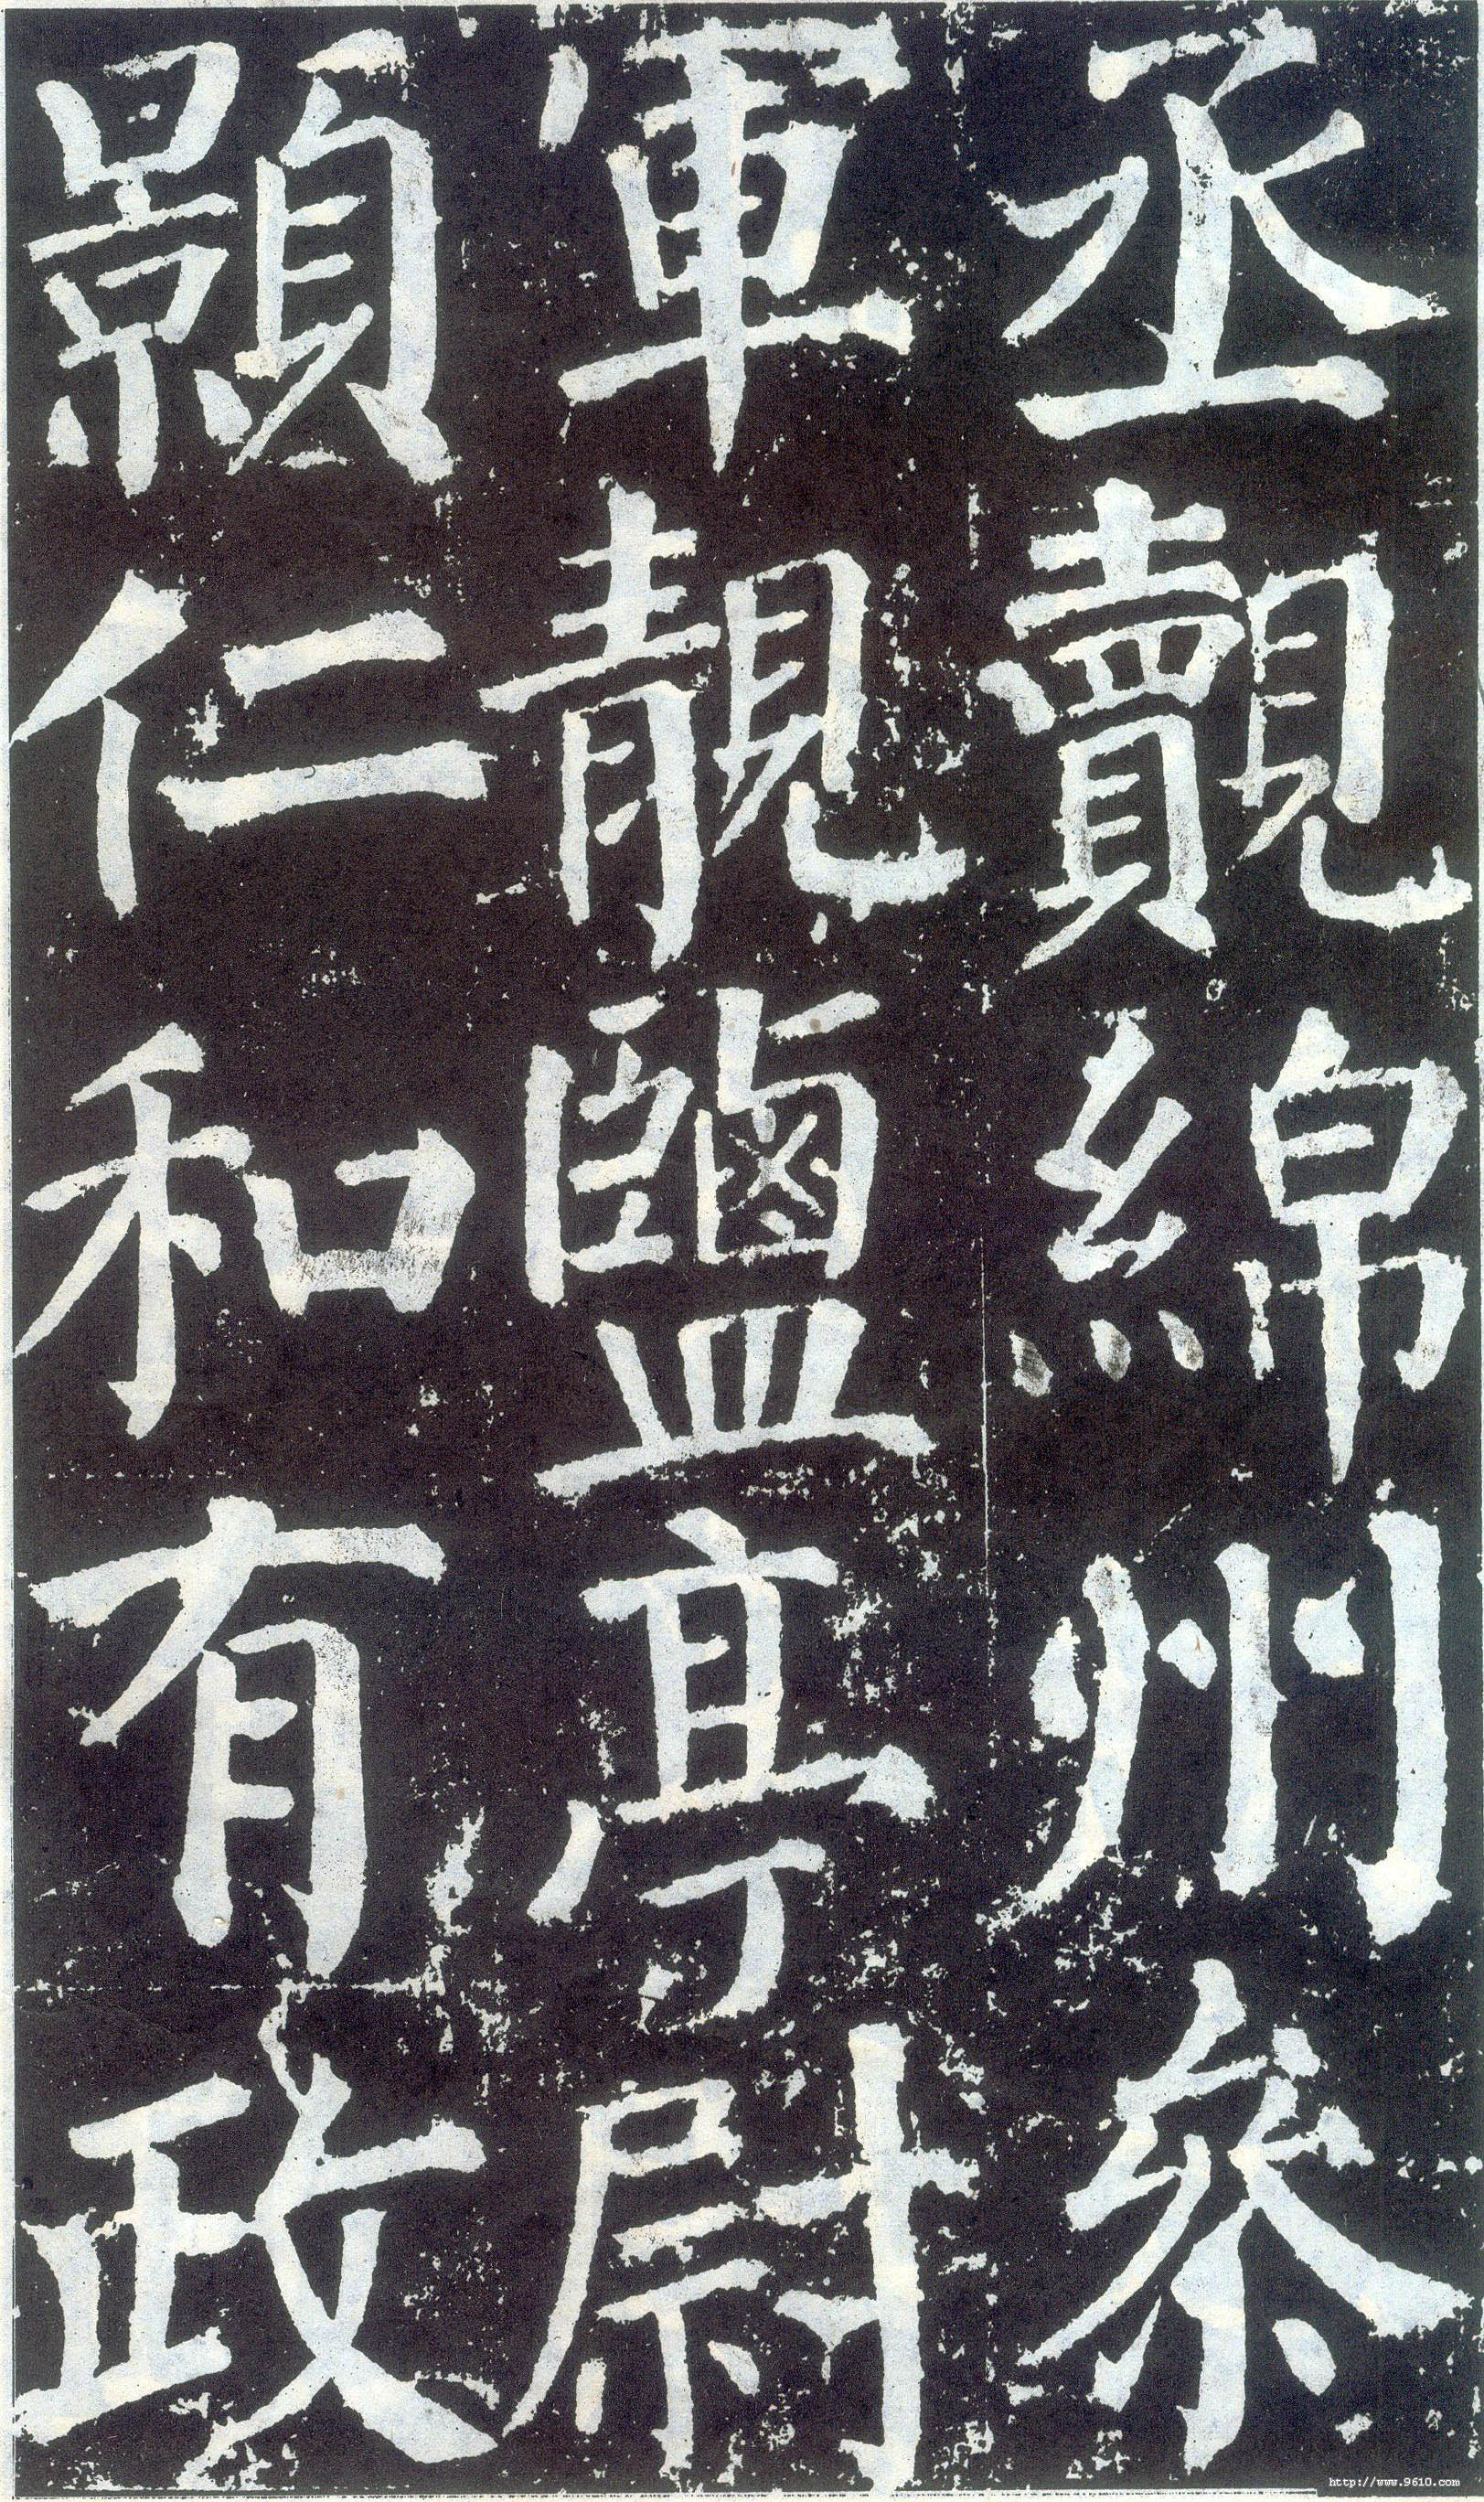 丞覿綿州參
軍靚鹽亭尉
顥仁和有政
http://www.9610.com